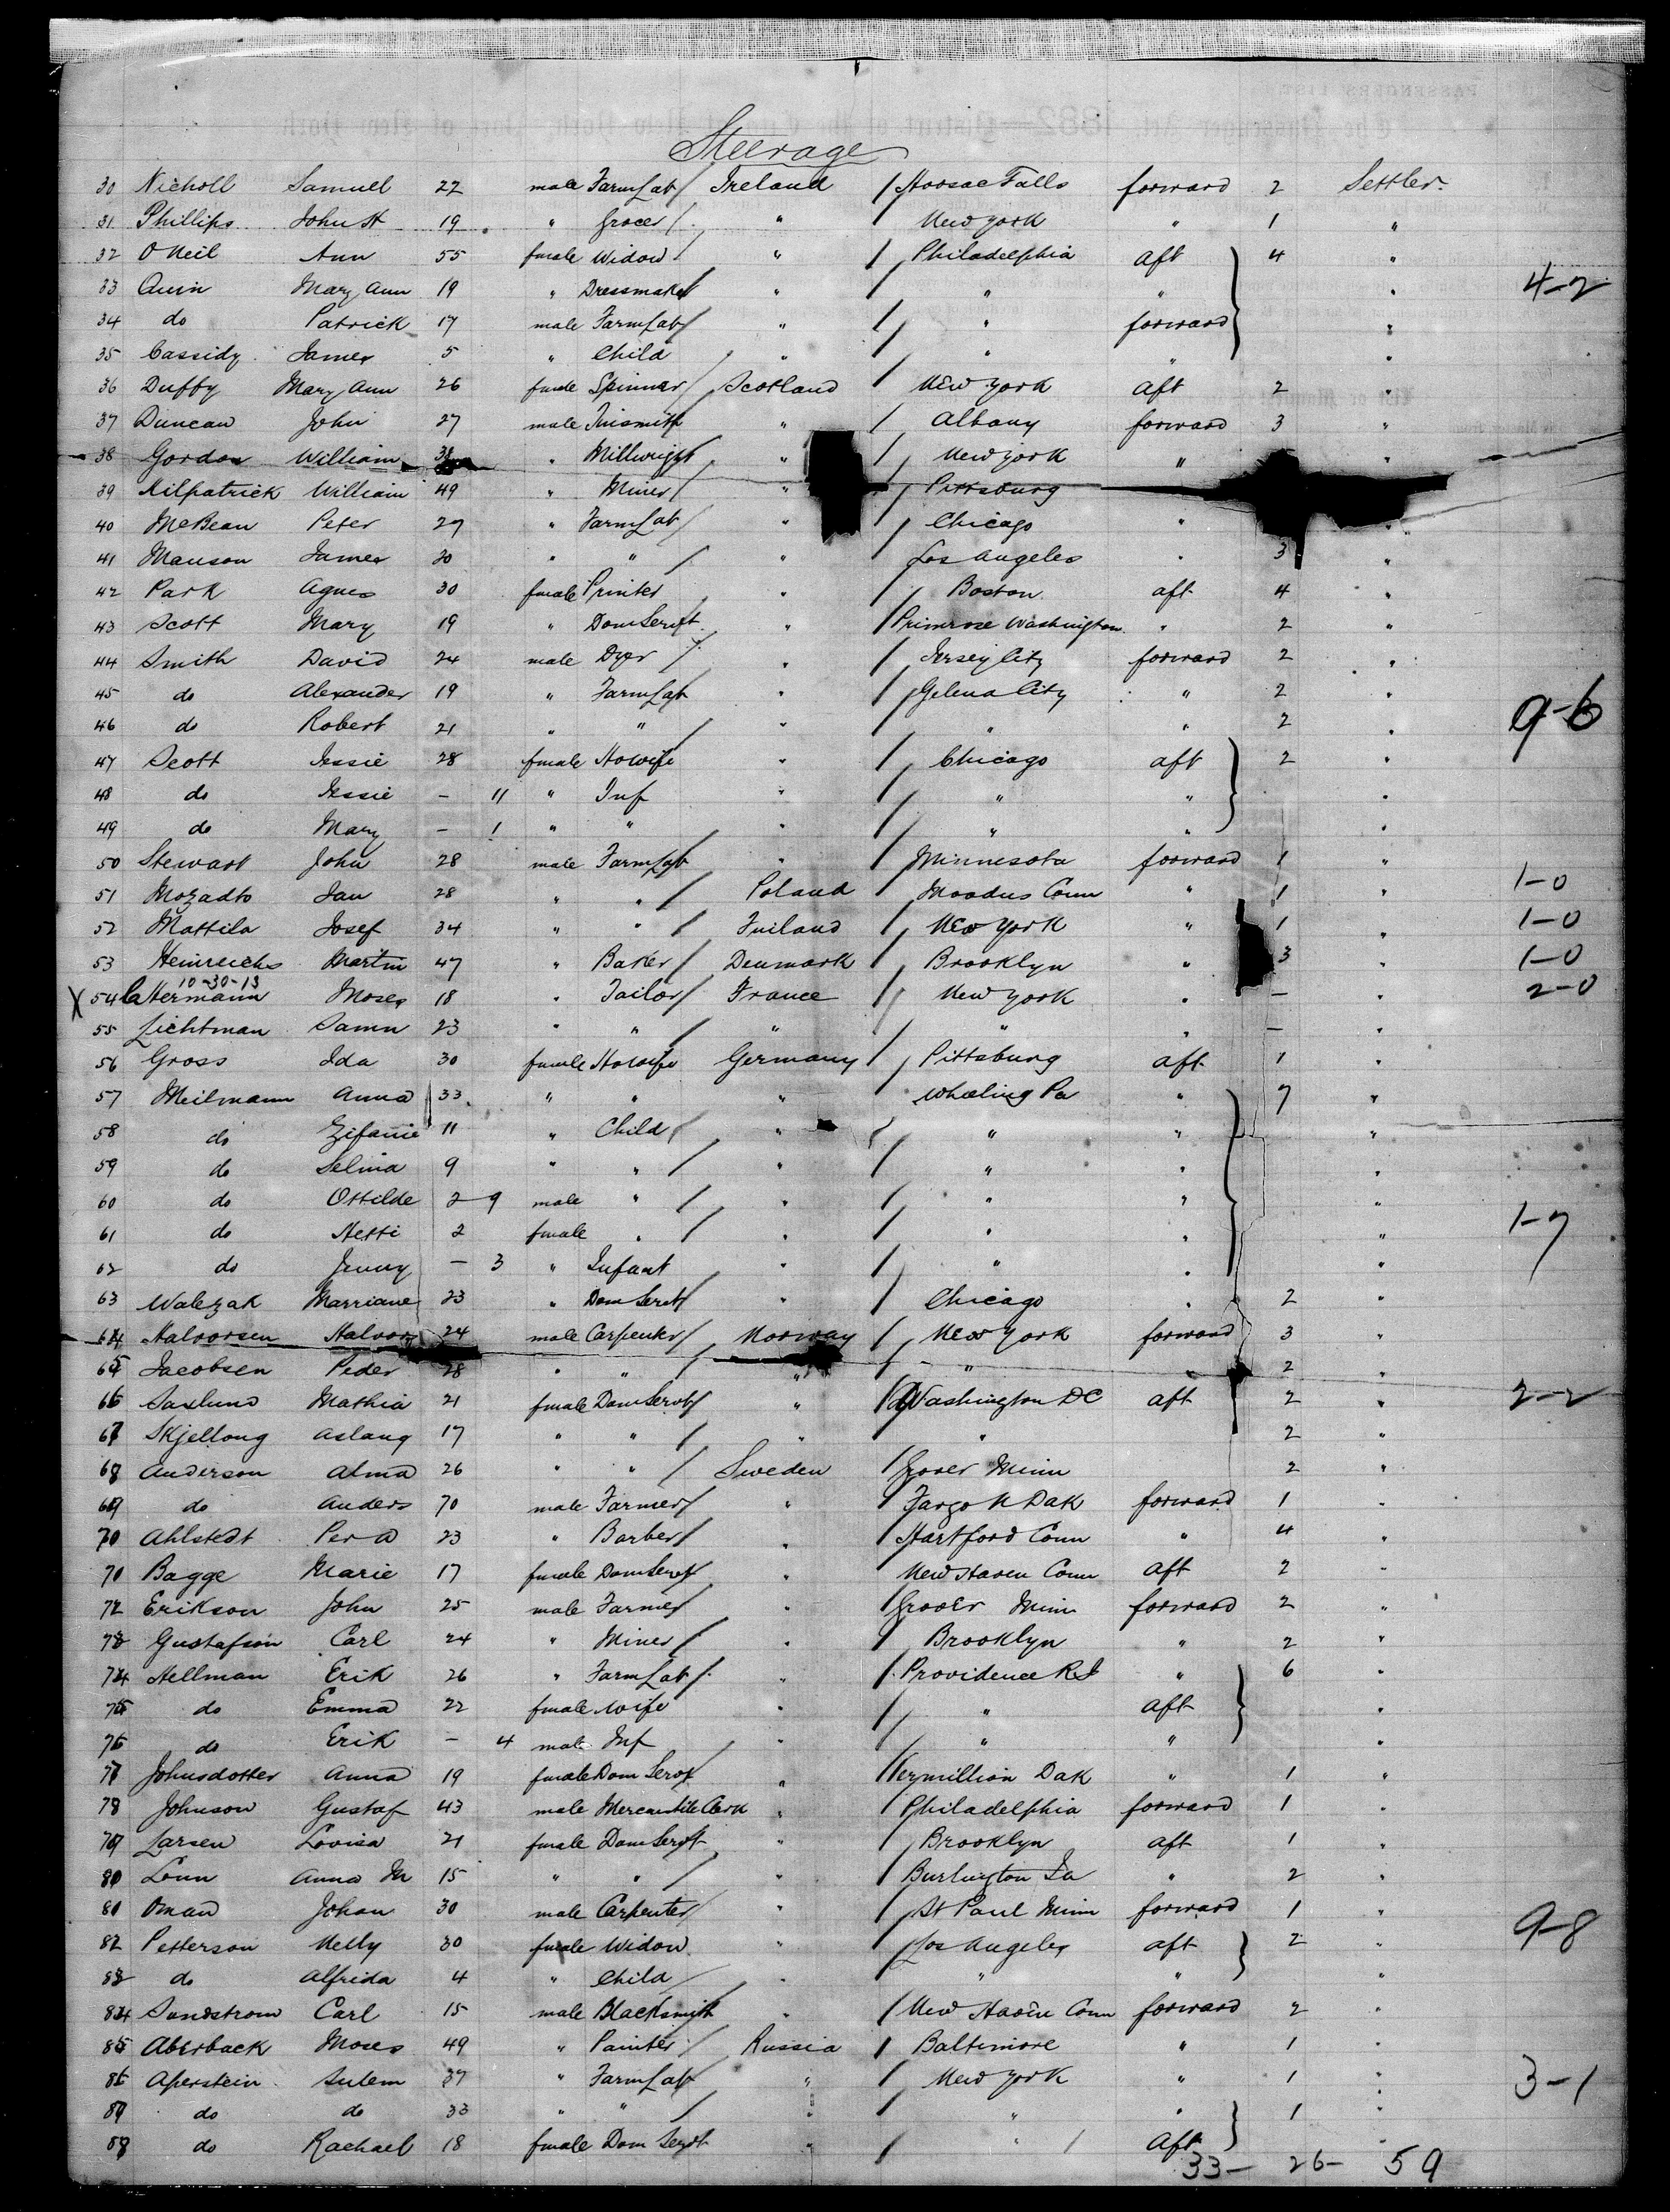 Steerage
30 Nicholl Samuel 22 male Farm Lab Ireland Hoosac Falls forward 2 Settler.
31 Phillips John H 19 " Grocer " New York " 1 "
32 O Neil Ann 55 female Widow " Philadelphia aft 4 "
33 Quin Mary Ann 19 " Dressmaker " " " " 4-2
34 do Patrick 17 male Farm Lab " " forward "
35 Cassidy James 5 " Child " " " "
36 Duffy Mary Ann 26 female Spinner Scotland New York aft 2 "
37 Duncan John 27 male Tinsmith " Albany forward 3 "
38 Gordon William " Millwright " New York " "
39 Kilpatrick William 49 " Miner " Pittsburg
40 McBean Peter 27 " Farm Lab " Chicago " "
41 Manson James 30 " " " Los Angeles " 3 "
42 Park Agnes 30 female Printer " Boston aft 4 "
43 Scott Mary 19 " Dom Servt " Primrose Washington " 2 "
44 Smith David 24 male Dyer " Jersey City forward 2 "
45 do Alexander 19 " Farm Lab " Gelena City " 2 "
46 do Robert 21 " " " " " 2 " 9-6
47 Scott Jessie 28 female Howife " Chicago aft 2 "
48 do Jessie - 11 " Inf " " " "
49 do Mary - 1 " " " " " "
50 Stewart John 28 male Farm Lab " Minnesota forward 1 "
51 Mozadto Jan 28 " " Poland Moodus Conn " 1 " 1-0
52 Mattila Josef 34 " " Finland New York " 1 " 1-0
53 Heinreichs Martin 47 " Baker Denmark Brooklyn " 3 " 1-0
10-30-13
X 54 Ca Hermann Moses 18 " Tailor France New York " - " 2-0
55 Lichtman Samn 23 " " " " " - "
56 Gross Ida 30 female Howife Germany Pittsburg aft 1 "
57 Meilmann Anna 33 " " " Wheeling Pa " 7 "
58 do Zifanie 11 " Child " " " "
59 do Selina 9 " " " " " "
60 do Ottilde 2 9 male " " " " "
61 do Hetti 2 female " " " " " 1-7
62 do Jenny - 3 " Infant " " " "
63 Walezak Marriane 23 " Dom Servt " Chicago " 2 "
64 Halvorsen Halvor 24 male Carpenter Norway New York forward 3 "
65 Jacobsen Peder 28 " " " " " 2 "
66 Saxlund Mathia 21 female Dom Servt " Washington DC aft 2 " 2-2
67 Skjellong Aslaug 17 " " " " 2 "
68 Anderson Alma 26 " " Sweden Grover Minn 2 "
69 do Anders 70 male Farmer " Fargo N Dak forward 1 "
70 Ahlstedt Per A 23 " Barber " Hartford Conn " 4 "
71 Bagge Marie 17 female Dom Servt " New Haven Conn aft 2 "
72 Erikson John 25 male Farmer " Grover Minn forward 2 "
73 Gustafson Carl 24 " Miner " Brooklyn " 2 "
74 Hellman Erik 26 " Farm Lab " Providence R.I " 6 "
75 do Emma 22 female Wife " " aft "
76 do Erik - 4 male Inf " " " "
77 Johnsdotter Anna 19 female Dom Servt " Vermillion Dak " 1 "
78 Johnson Gustaf 43 male Mercantile Clerk " Philadelphia forward 1 "
79 Larsen Lovisa 21 female Dom Servt " Brooklyn aft 1 "
80 Lonn Anna M 15 " " " Burlington Ia " 2 "
81 Oman Johan 30 male Carpenter " St Paul Minn forward 1 "
82 Petterson Nelly 30 female Widow " Los Angeles aft 2 " 9-8
83 do Alfrida 4 " Child " " " "
84 Sundstrom Carl 15 male Blacksmith " New Haven Conn forward 2 "
85 Aberback Moses 49 " Painter Russia Baltimore " 1 "
86 Aperstein Sulem 37 " Farm Lab " New York " 1 " 3-1
87 do do 33 " " " " " 1 "
88 do Rachael 18 female Dom Servt " " aft "
33- 26- 59